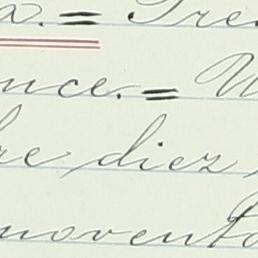 a. = Tre
nce. = U
re diez
novent